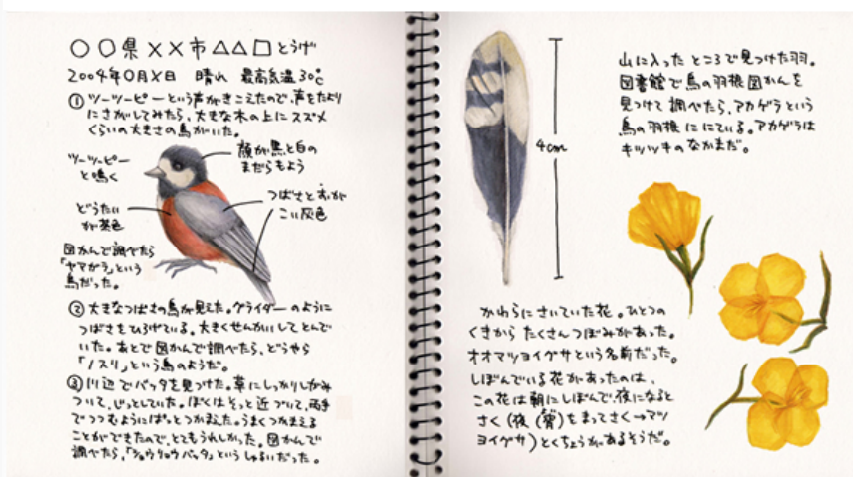 ○○県××市△△□とうげ
2004年○月×日 晴れ 最高気温30℃
① ツーツーピーという声がきこえたので、声をたより
にさがしてみたら、大きな木の上にスズメ
くらいの大きさの鳥がいた。
ツーツーピー
と鳴く
顔が黒と白の
まだらもよう
どうたい
が茶色
つばさとおが
こい灰色
図かんで調べたら
「ヤマガラ」という
鳥だった。
② 大きなつばさの鳥が見えた。グライダーのように
つばさをひろげている。大きくせんかいしてとんで
いた。あとで図かんで調べたら、どうやら
「ノスリ」という鳥のようだ。
③ 川辺でバッタを見つけた。草にしっかりしがみ
ついて、じっとしていた。ぼくはそっと近づいて、両手
でつつむようにぱっとつかまえた。うまくつかまえる
ことができたので、とてもうれしかった。図かんで
調べたら、「ショウリョウバッタ」というしゅるいだった。
4cm
山に入ったところで見つけた羽。
図書館で鳥の羽根図かんを
見つけて調べたら、アカゲラという
鳥の羽根ににている。アカゲラは
キツツキのなかまだ。
かわらにさいていた花。ひとつの
くきからたくさんつぼみがあった。
オオマツヨイグサという名前だった。
しぼんでいる花があったのは、
この花は朝にしぼんで、夜になると
さく(夜(宵)をまってさく→マツ
ヨイグサ)とくちょうがあるそうだ。